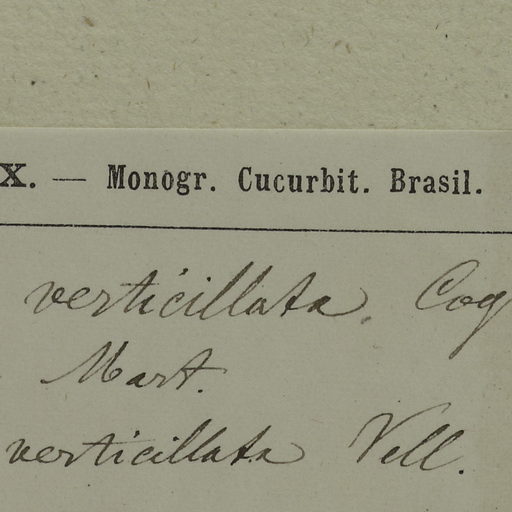 X. — Monogr. Cucurbit. Brasil.
verticillata. Cog
Mart.
verticillata Vell.